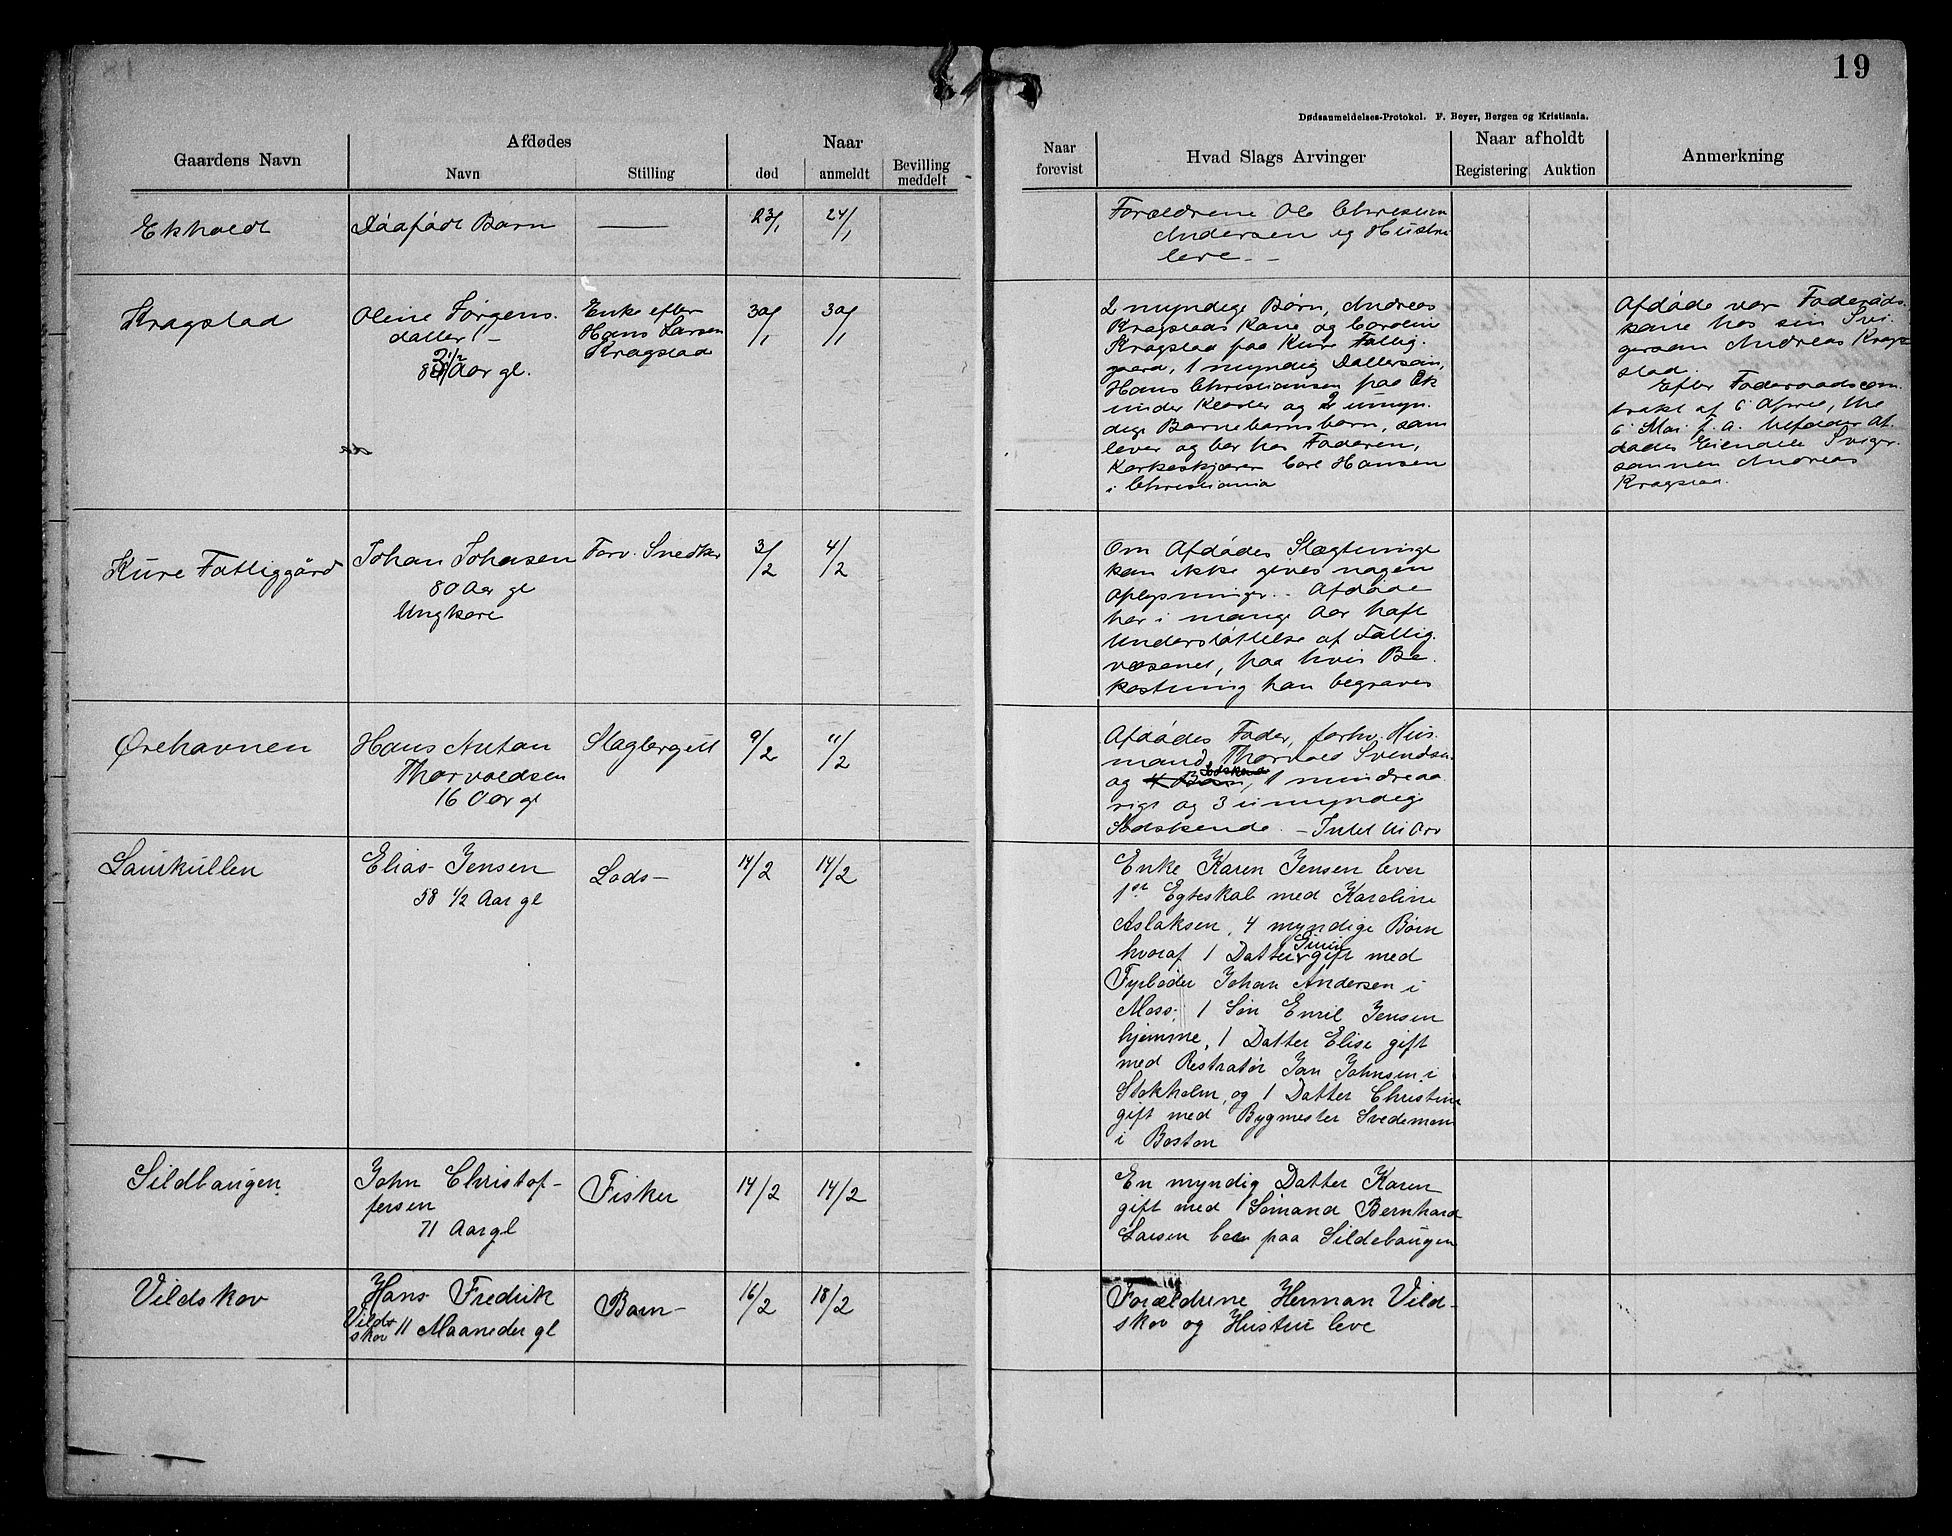 19
Dødsanmeldelses-Protokol. F. Beyer, Bergen og Kristiania.
Gaardens Navn
Afdødes
Navn
Stilling
Naar
død
anmeldt
Bevilling
meddelt
Naar
forevist
Hvad Slags Arvinger
Naar afholdt
Registering
Auktion
Anmerkning
Ekholdt
Dødfødt Barn
23/1
24/1
Forældrene Ole Christian
Andersen og Hustru
leve -
Kragstad
Oline Jørgens-
datter -
82 1/2 Aar gl.
Enke efter
Hans Larsen
Kragstad
30/1
30/1
2 myndige Børn, Andreas
Kragstads Kone og Caroline
Kragstad paa Kure Fattig-
gaard, 1 myndig Dattersøn,
Hans Christiansen paa Ek
under Kloster og 2 umyn-
dige Barnebarnsbørn, som
lever og bor hos Faderen,
Korkeskjærer Carl Hansen
i Christiania
Afdøde var Føderåds-
kone hos sin Svi-
gersøn Andreas Krag-
stad.
Efter Føderaadscon-
trakt af 6 April, thl.
6 Mai f. a. tilfalder Af-
dødes Eiendele Sviger-
sønnen Andreas
Kragstad.
Kure Fattiggård
Johan Johnsen
80 Aar gl
Ungkarl
Forv. Snedker
3/2
4/2
Om Afdødes Slægtninge
kan ikke gives nogen
Oplysninger. - Afdøde
har i mange Aar haft
Understøttelse af Fattig-
væsenet, paa hvis Be-
kostning han begraves
Ørehavnen
Hans Anton
Thorvaldsen
16 Aar gl
Slagtergut
9/2
11/2
Afdødes Fader, forhv. Hus-
mand Thorvald Svendsen
og 1 mindreaa-
rigt og 3 umyndige
Sødskende. - Intet til Arv
Laurkullen
Elias Jensen
58 1/2 Aar gl
Lods -
14/2
14/2
Enke Karen Jensen lever
1ste Egteskab med Karoline
Aslaksen, 4 myndige Børn
hvoraf 1 Datter gift med
Fyrbøder Johan Andersen i
Moss, 1 Søn Emil Jensen
hjemme, 1 Datter Elise gift
med Restratør Jan Johnsen i
Stokholm, og 1 Datter Christine
gift med Bygmester Svedeman
i Boston
Sildbaugen
John Christof-
fersen
71 Aar gl
Fisker
14/2
14/2
En myndig Datter Karen
gift med Sømand Bernhard
Larsen boer paa Sildebaugen
Vildskov
Hans Fredrik
Vild-
skov 11 Maaneder gl
Barn -
16/2
18/2
Forældrene Herman Vild-
skov og Hustru leve